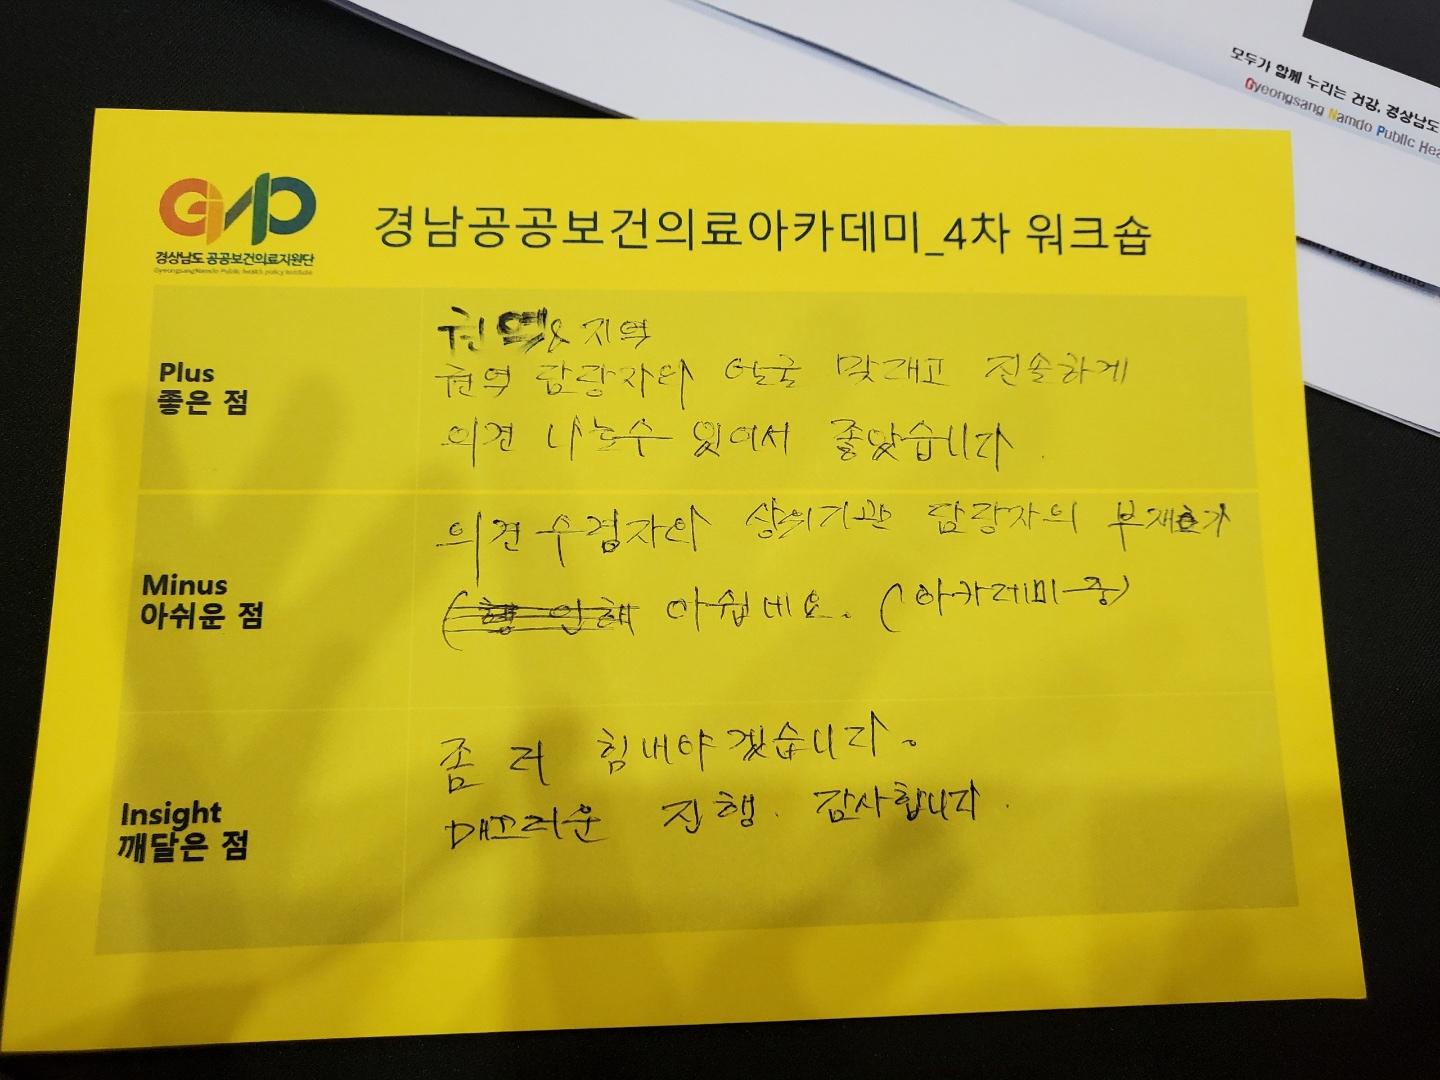 모두가 함께 누리는 건강, 경상남도
Gyeongsang Namdo Public Hea
경상남도 공공보건의료지원단
GyeongsangNamdo Public health policy Institute
경남공공보건의료아카데미_4차 워크숍
Plus
좋은 점
권역& 지역
권역 담당자와 얼굴 맞대고 진솔하게
의견 나눌수 있어서 좋았습니다.
Minus
아쉬운 점
의견수렴자와 상위기관 담당자의 부재가
아쉽네요. (아카데미 중)
Insight
깨달은 점
좀 더 힘내야겠습니다.
매끄러운 진행. 감사합니다.